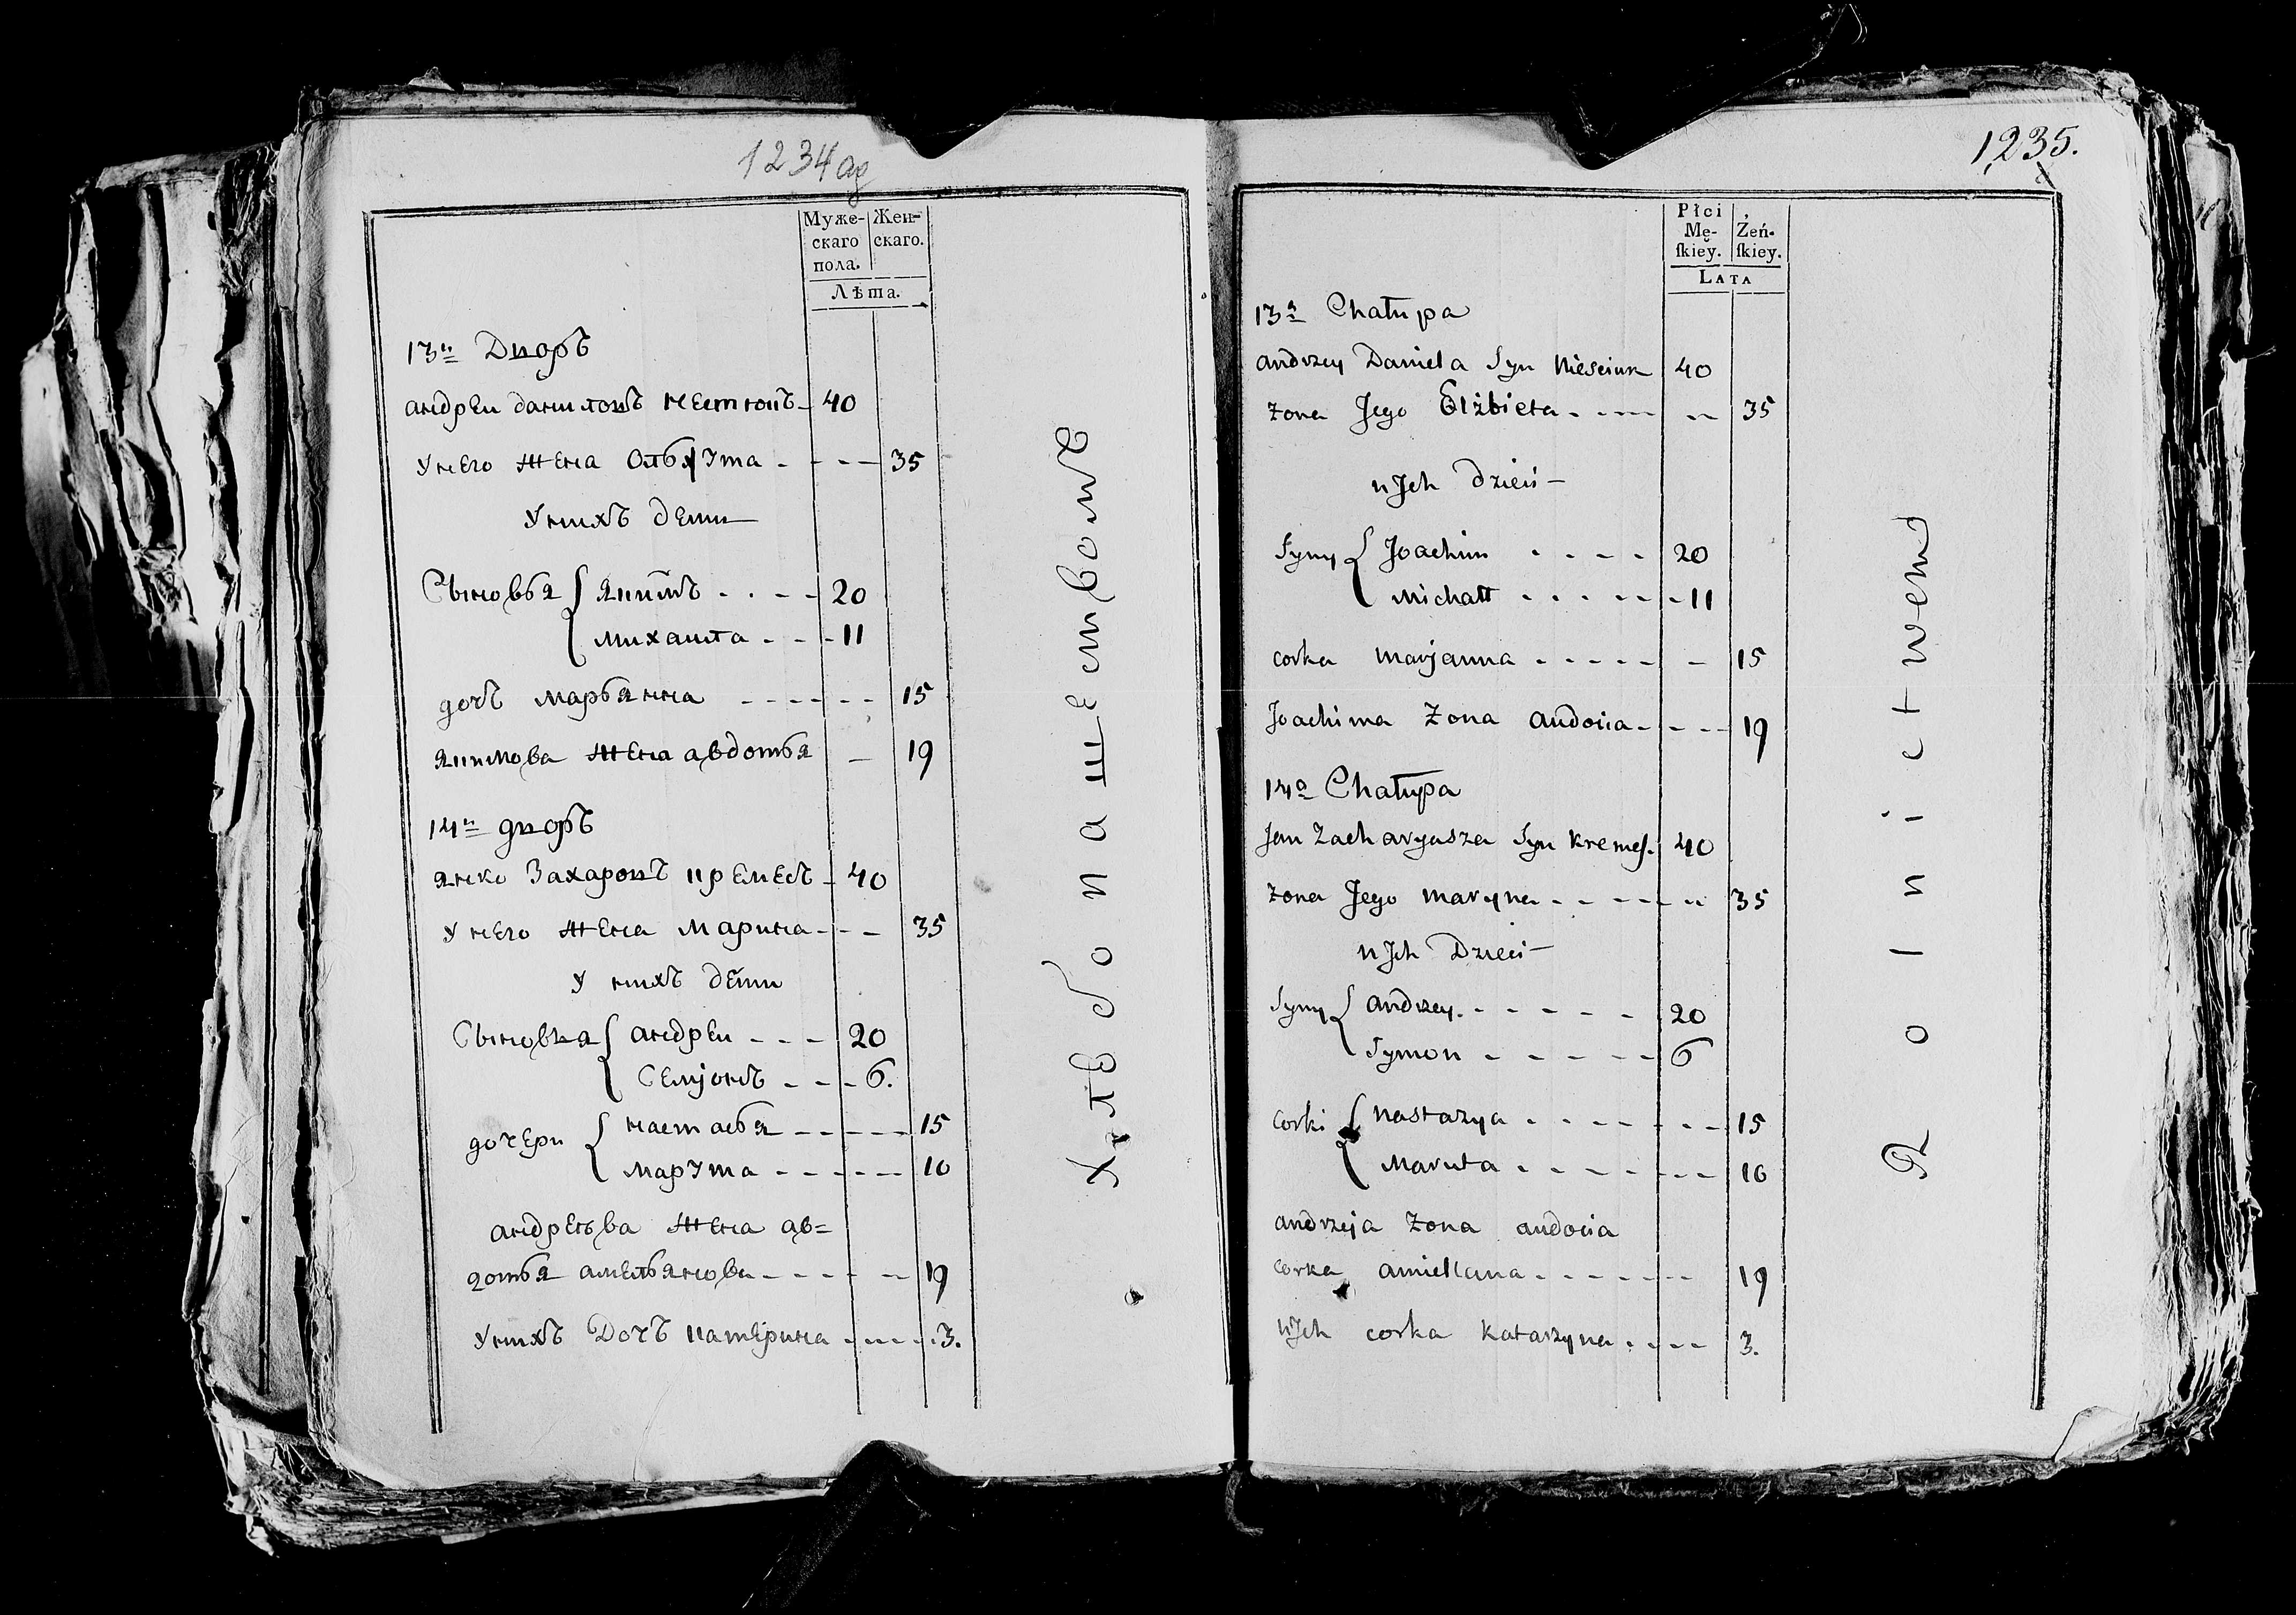 1234 об
Муже-
скаго
пола.
Жен-
скаго.
Лѣта.
13й Дворъ
андрей даниловъ нестюкъ 40
У него жена Ольжута 35
У нихъ дети
Сыновья якимъ 20
михайла 11
дочъ марьянна 15
якимова жена авдотья 19
14й дворъ
янко Захаровъ кремесъ 40
У него жена марина 35
У нихъ дети
Сыновья андрей 20
Семіонъ 6.
дочери настасья 15
марута 10
андреева жена ав=
дотья амельянова 19
У нихъ дочъ катерина 3.
Хлебопашествомъ
1235.
Płci
Mę-
ſkiey.
Żeń-
ſkiey.
Lata
13a Chałupa
andrzey Daniela Syn Niesciuk 40
żona Jego Elżbieta 35
u Jch dzieci
Syny Joachim 20
Michałł 11
corka marjanna 15
Joachima żona audocia 19
14a Chałupa
Jan Zacharyasza Syn kremes. 40
żona Jego maryna 35
u Jch Dzieci
Syny andrzey 20
Symon 6
corki nastazya 15
Maruta 10
andrzeja żona audocia
corka amieliana 19
u Jch corka katarzyna 3.
Rolnictwem